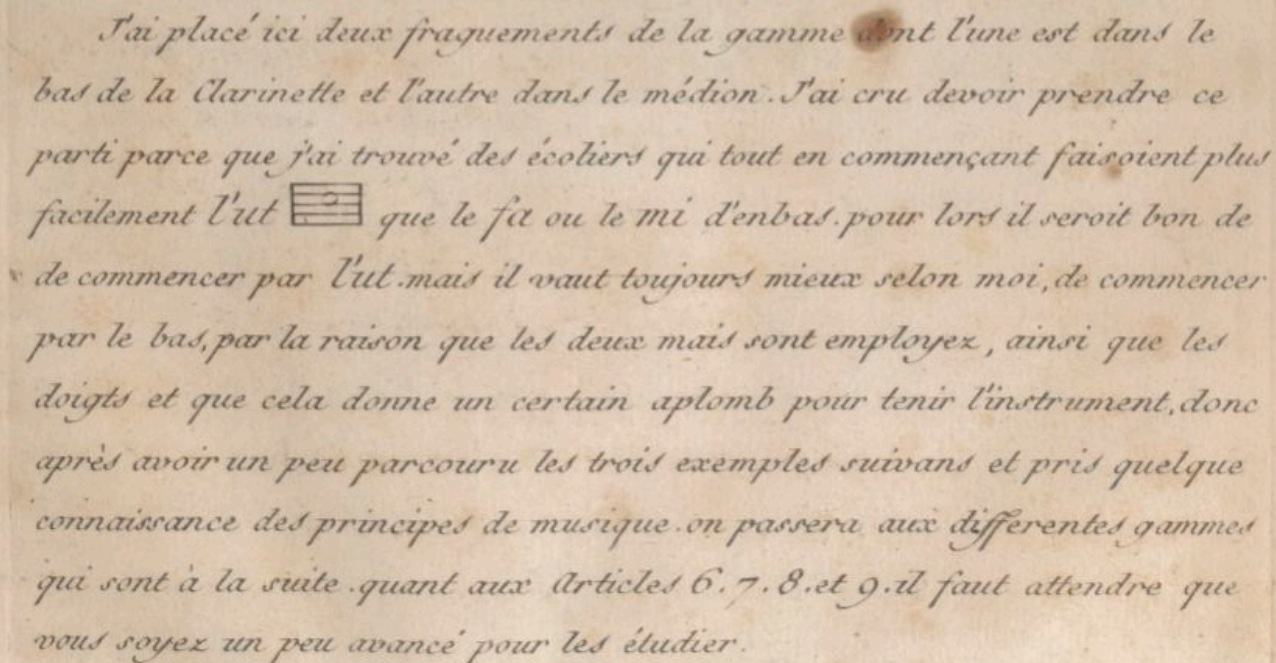 J'ai placé ici deux fraguements de la gamme dont l'une est dans le
bas de la Clarinette et l'autre dans le médion. J'ai cru devoir prendre ce
parti parce que j'ai trouvé des écoliers qui tout en commençant faisoient plus
facilement l'ut que le fa ou le mi d'enbas. pour lors il seroit bon de
de commencer par l'ut. mais il vaut toujours mieux selon moi, de commencer
par le bas, par la raison que les deux mais sont employez, ainsi que les
doigts et que cela donne un certain aplomb pour tenir l'instrument, donc
après avoir un peu parcouru les trois exemples suivans et pris quelque
connaissance des principes de musique. on passera aux differentes gammes
qui sont à la suite. quant aux Articles 6. 7. 8. et 9. il faut attendre que
vous soyez un peu avancé pour les étudier.